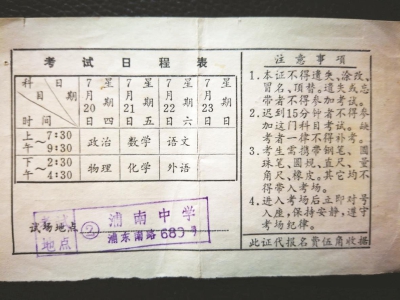 考试日程表
科目 日期 时间
7月20日 星期四
7月21日 星期五
7月22日 星期六
7月23日 星期日
上午 7:30~9:30 政治 数学 语文
下午 2:30~4:30 物理 化学 外语
试场地点
地点 ② 浦南中学
浦东南路689号
注意事项
1.本证不得遗失、涂改、
冒名、顶替。遗失或忘
带者不得参加考试。
2.迟到15分钟者不得参
加这门科目考试。缺
考者一律不得补考。
3.考生需携带钢笔、圆
珠笔、圆规、直尺、量
角尺、橡皮。其它均不
得带入考场。
4.进入考场后立即对号
入座，保持安静，遵守
考场纪律。
此证代报名费伍角收据